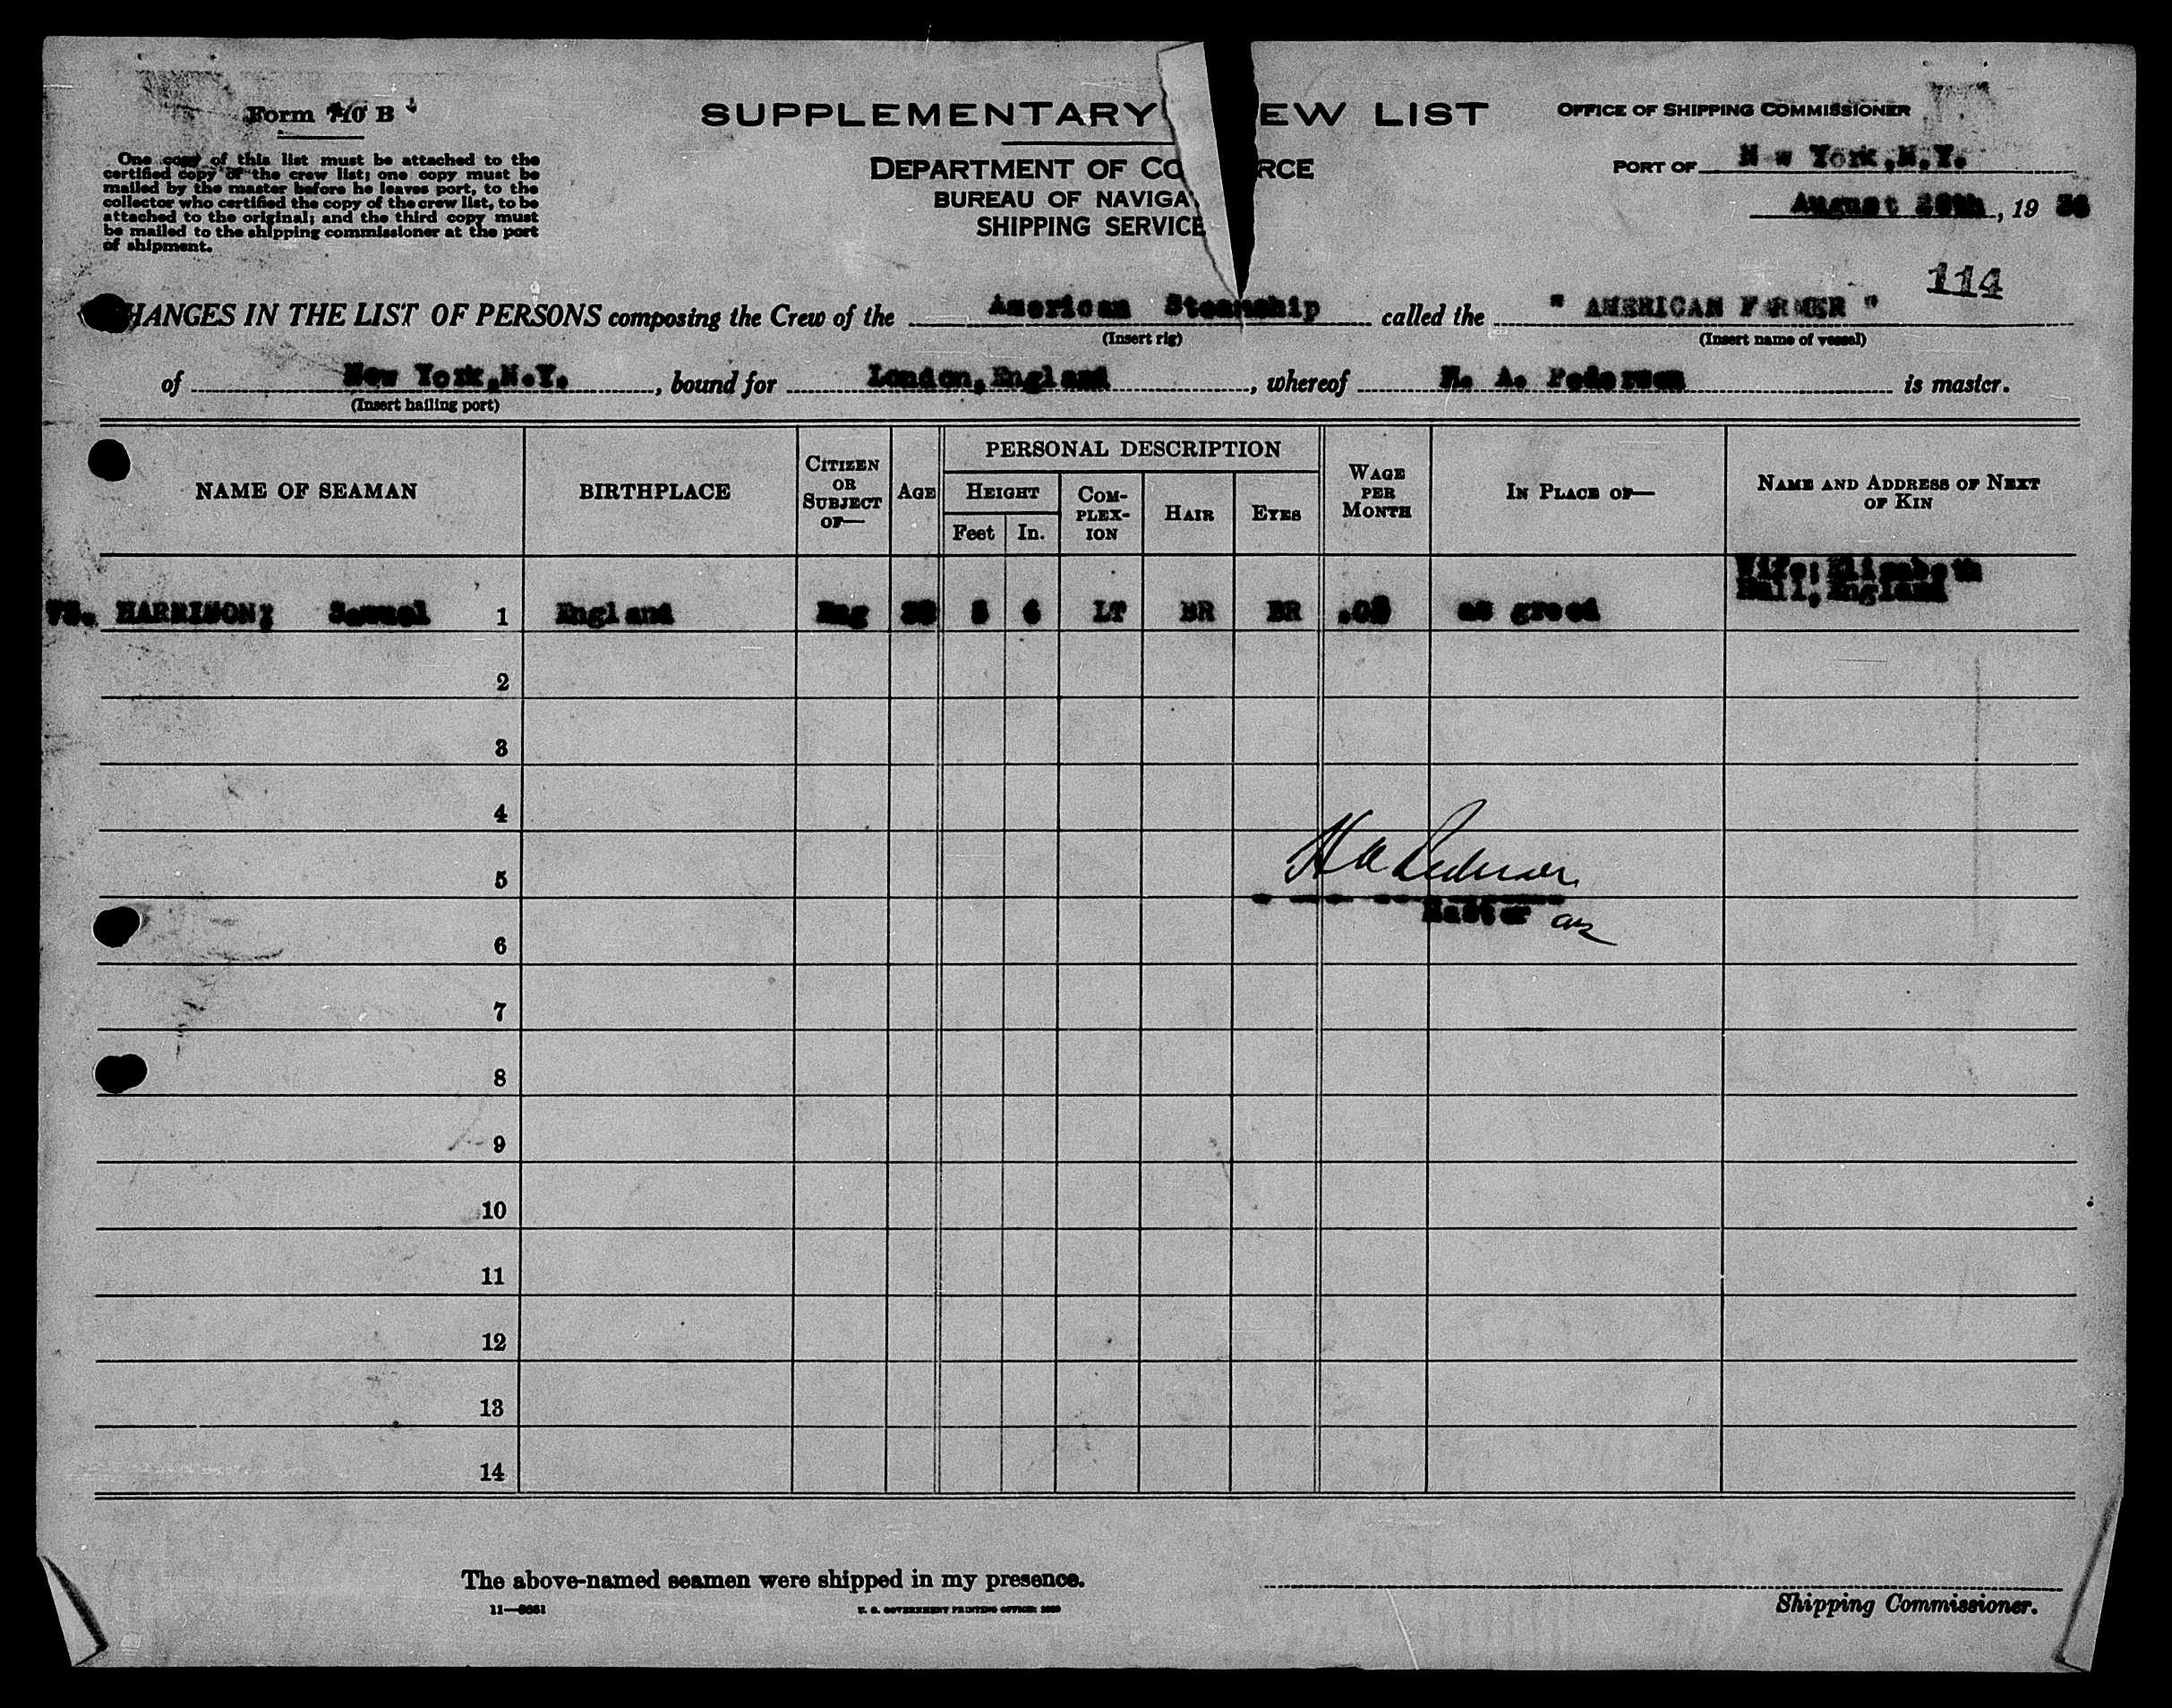 Form 710 B
One copy of this list must be attached to the
certified copy of the crew list; one copy must be
mailed by the master before he leaves port, to the
collector who certified the copy of the crew list, to be
attached to the original; and the third copy must
be mailed to the shipping commissioner at the port
of shipment.
SUPPLEMENTARY EW LIST
DEPARTMENT OF CO RCE
BUREAU OF NAVIGA
SHIPPING SERVICE
OFFICE OF SHIPPING COMMISSIONER
PORT OF N w York,N.Y.
August , 19 36
114
HANGES IN THE LIST OF PERSONS composing the Crew of the American Steamship called the " AMERICAN FARMER "
(Insert rig) (Insert name of vessel)
of New York,N.Y. , bound for London,England , whereof H. A. Pedersen is master.
(Insert hailing port)
NAME OF SEAMAN BIRTHPLACE CITIZEN OR SUBJECT OF— AGE PERSONAL DESCRIPTION HEIGHT Feet In. COM-PLEX-ION HAIR EYES WAGE PER MONTH IN PLACE OF— NAME AND ADDRESS OF NEXT OF KIN
Wife: Elizabeth
Hull, England
HARRISON; Samuel 1 England Eng 5 6 LT BR BR as greed
2
3
4
H A Pedersen
5
Master
6
7
8
9
10
11
12
13
14
The above-named seamen were shipped in my presence.
11—
U. S. GOVERNMENT PRINTING OFFICE:
Shipping Commissioner.